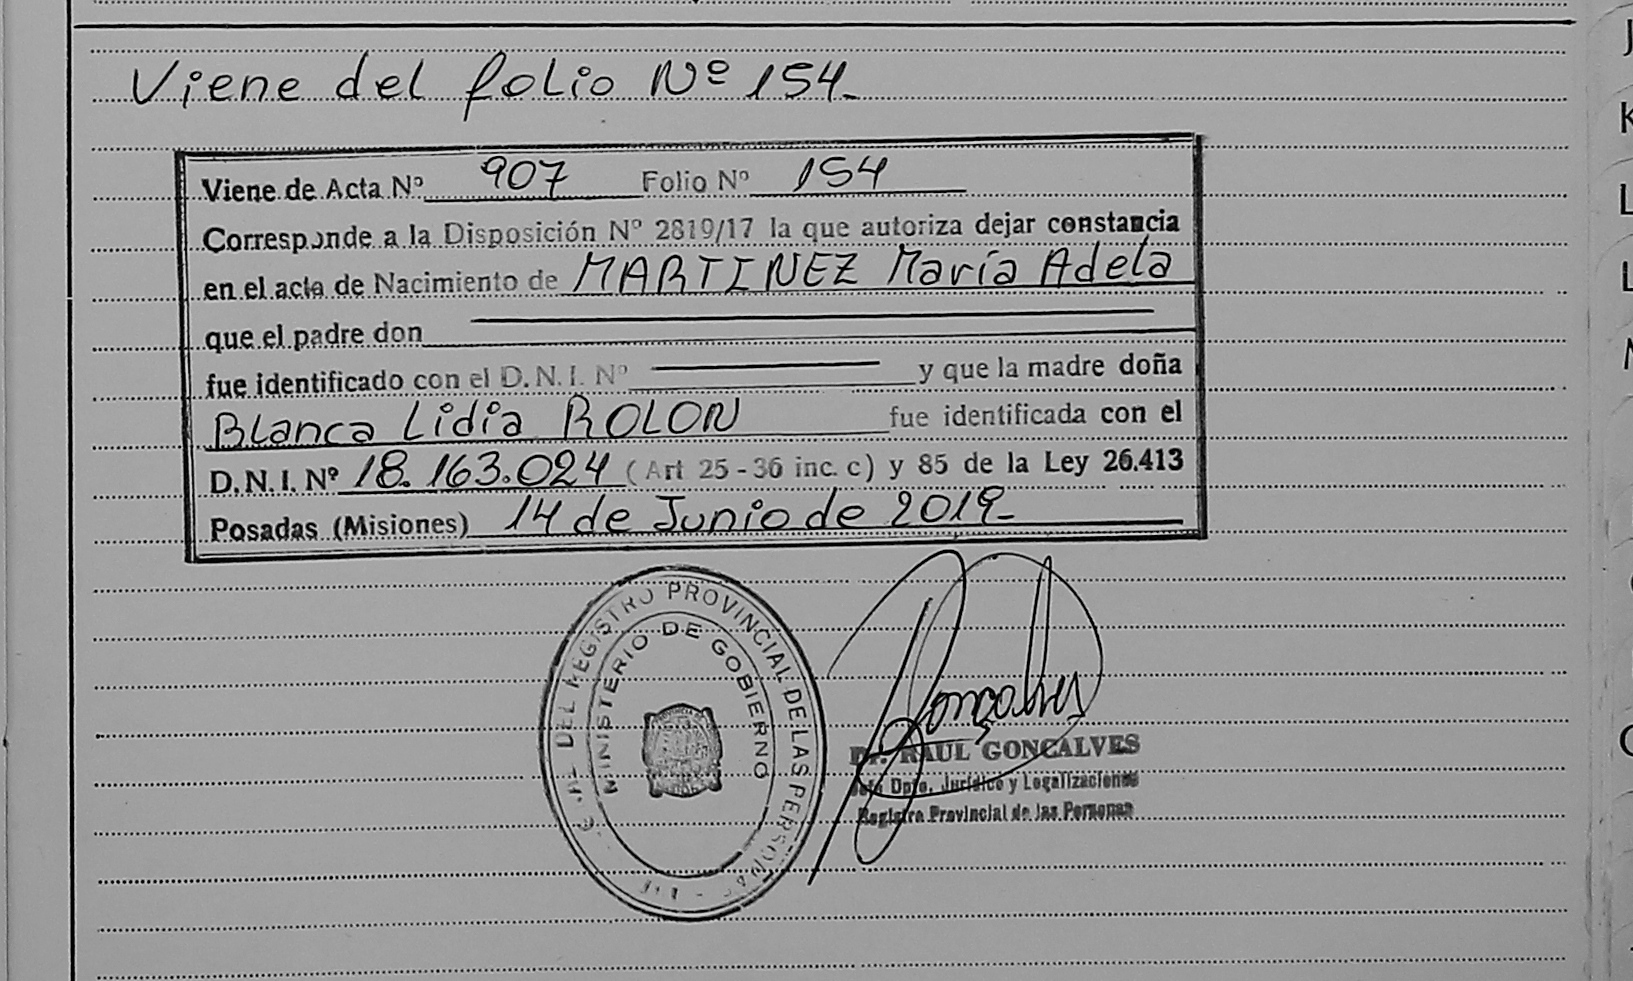 Viene del folio Nº 154-
Viene de Acta Nº 907 Folio Nº 154
Corresponde a la Disposición Nº 2819/17 la que autoriza dejar constancia
en el acta de Nacimiento de MARTINEZ María Adela
que el padre don
fue identificado con el D.N.I. Nº y que la madre doña
Blanca Lidia ROLON fue identificada con el
D.N.I. Nº 18.163.024 (Art 25-36 inc. c) y 85 de la Ley 26.413
Posadas (Misiones) 14 de Junio de 2019-
DEL REGISTRO PROVINCIAL DE LAS PERSONAS
MINISTERIO DE GOBIERNO
Gonçalves
Dr. RAUL GONÇALVES
Jefe Dpto. Jurídico y Legalizaciones
Registro Provincial de las Personas
J
K
L
L